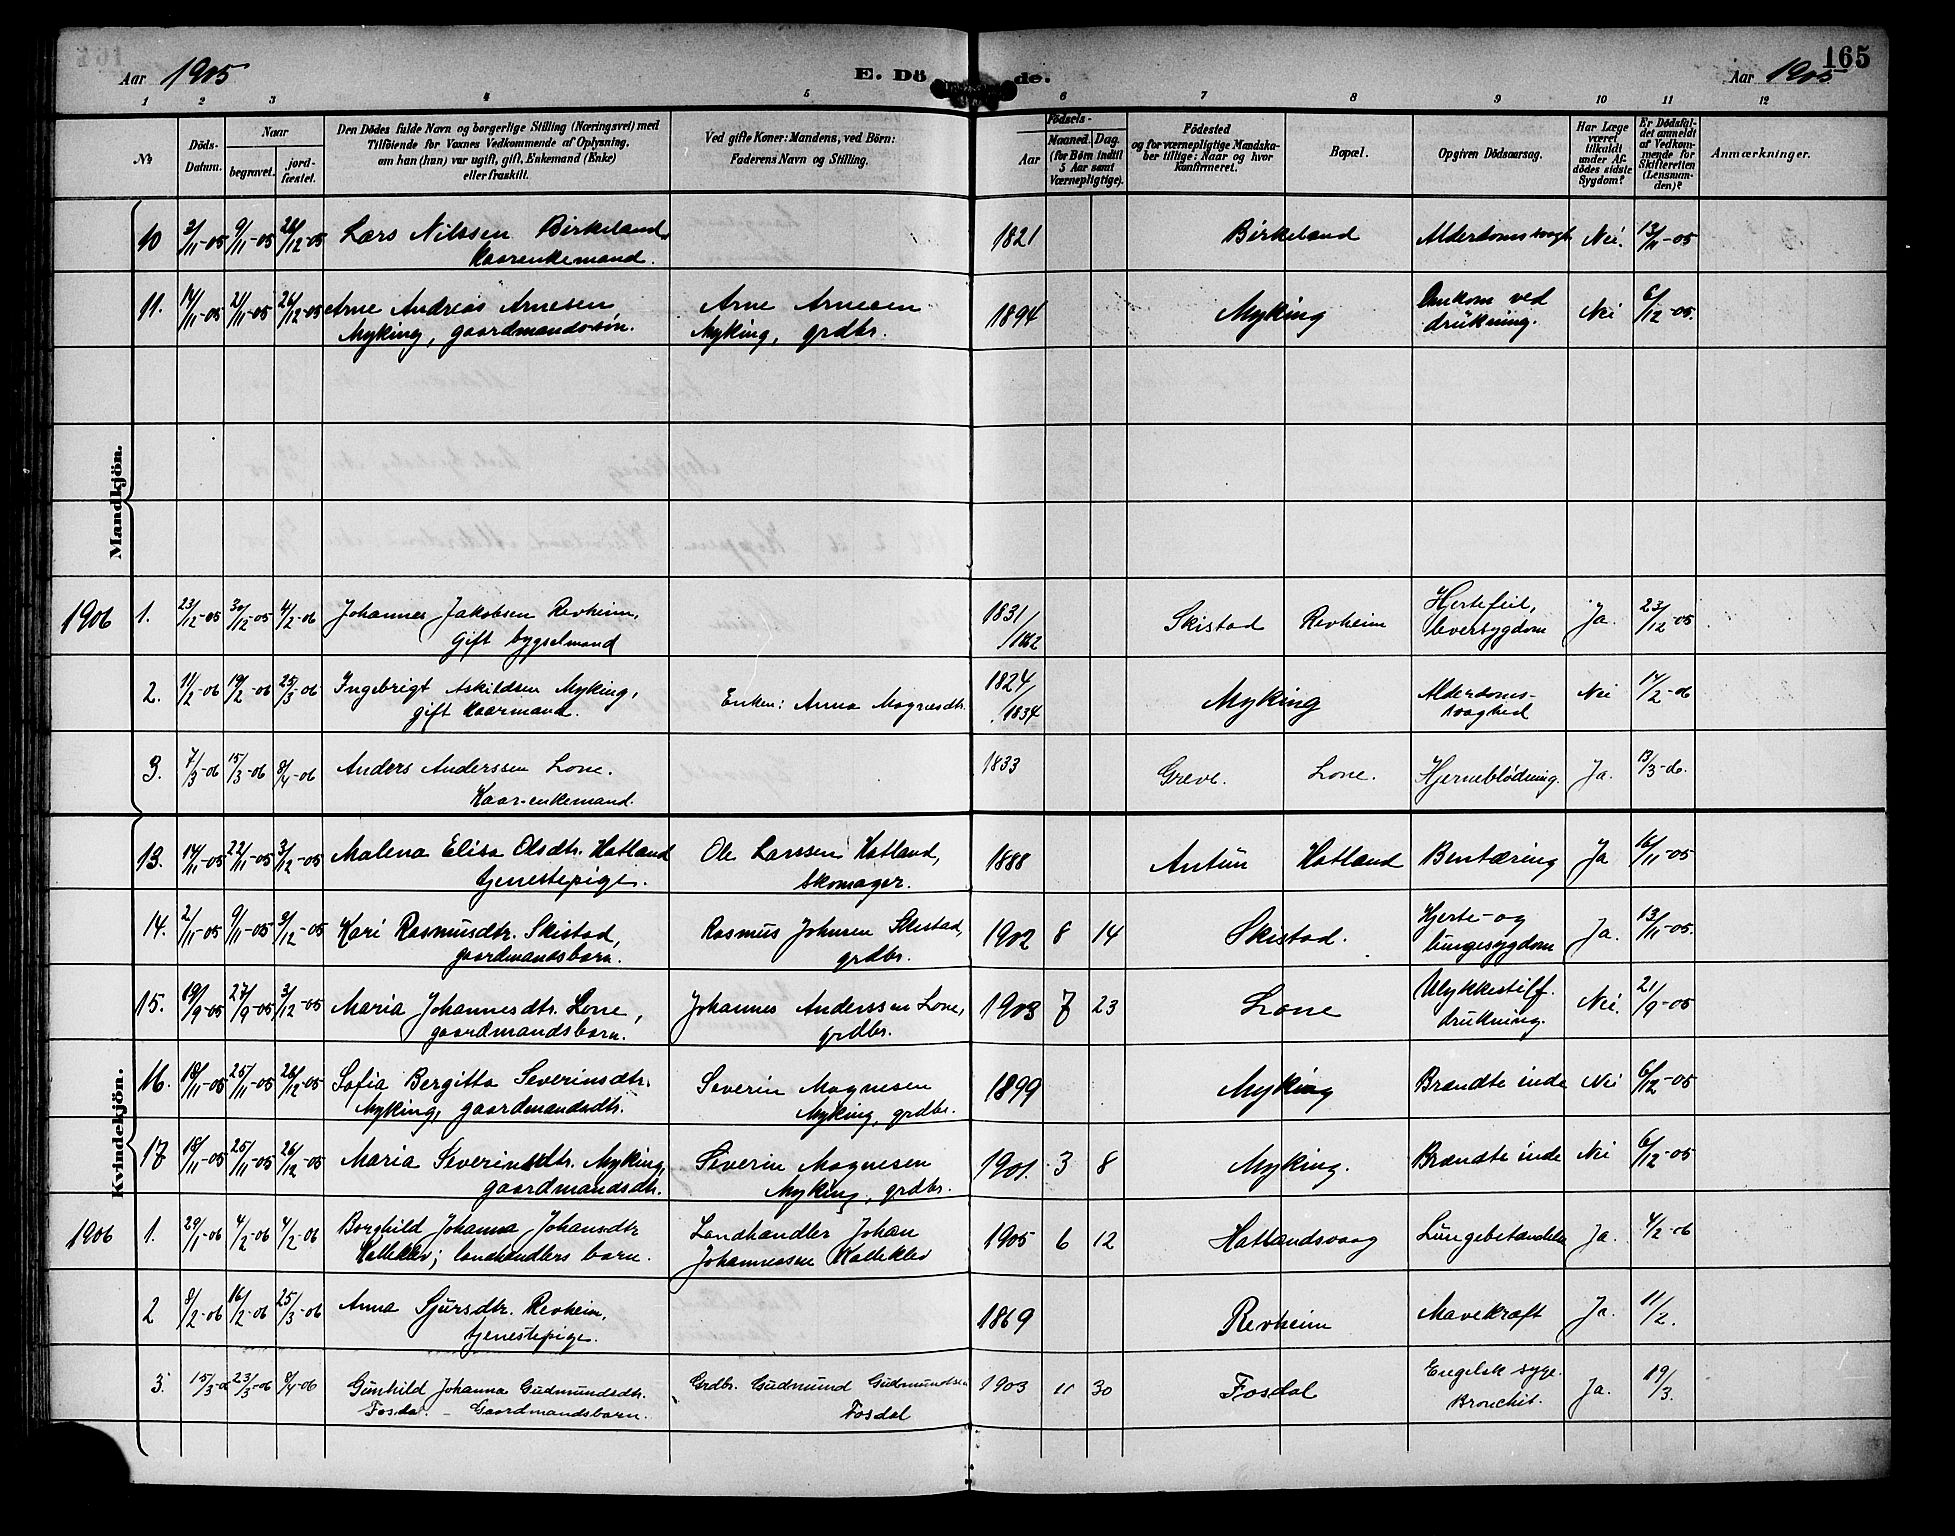 165
Aar 1905
E. Döde.
Aar 1905
1 2 3 4 5 6 7 8 9 10 11 12
No
Döds-Datum.
Naar
begravet.
jord-fæstet.
Den Dödes fulde Navn og borgerlige Stilling (Næringsvei) med
Tilföiende for Voxnes Vedkommende af Oplysning,
om han (hun) var ugift, gift, Enkemand (Enke)
eller fraskilt.
Ved gifte Koner: Mandens, ved Börn:
Faderens Navn og Stilling.
Födsels-
Aar
Maaned. Dag.
(for Börn indtil
5 Aar samt
Værnepligtige).
Födested
og for værnepligtige Mandska-
ber tillige: Naar og hvor
konfirmeret.
Bopæl.
Opgiven Dödsaarsag.
Har Læge
været
tilkaldt
under Af-
dödes sidste
Sygdom?
Er Dödsfal-
det anmeldt
af Vedkom-
mende for
Skifteretten
(Lensman-
den)?
Anmærkninger.
Mandkjön.
10 3/11-05 9/11-05 26/12-05 Lars Nilssen Birkeland, 1821 Birkeland Alderdomssvagh. Nei. 13/11-05
Kaarenkemand.
11. 14/11-05 21/11-05 26/12-05 Arne Andreas Arnesen Arne Arnesen 1894 Myking Omkom ved Nei 6/12-05.
Myking, gaardmandssön. Myking, grdbr. drukning.
1906 1. 23/12-05 30/12-05 4/2-06 Johannes Jakobsen Revheim, 1831/1832 Skistad Revheim Hjertefeil, Ja. 23/12-05
Gift bygselmand leversygdom
2. 11/2-06 19/2-06 25/3-06 Ingebrigt Askildsen Myking, Enken: Anna Magnesdtr. 1824/1834 Myking Alderdoms- Nei 14/2-06
gift Kaarmand. svaghed
3. 7/3-06 15/3-06 8/4-06 Anders Anderssen Lone. 1833 Greve. Lone. Hjerneblödning. Ja. 13/3-06.
Kaar-enkemand.
Kvindekjön.
13. 14/11-05 22/11-05 3/12-05 Malena Elisa Olsdtr. Hatland Ole Larssen Hatland, 1888 Antun Hatland Bentæring Ja 16/11-05
tjenestepige. skomager.
14. 2/11-05 9/11-05 3/12-05 Kari Rasmusdtr. Skistad, Rasmus Johnsen Skistad, 1902 8 14 Skistad. Hjerte- og Ja. 13/11-05.
gaardmandsbarn. grdbr. lungesygdom
15. 19/9-05 27/9-05 3/12-05 Maria Johannesdtr. Lone, Johannes Anderssen Lone, 1903 7 23 Lone Ulykkestilf. Nei. 21/9-05
gaardmandsbarn. grdbr. drukning.
16. 18/11-05 25/11-05 26/12-05 Sofia Bergitta Severinsdtr. Severin Magnesen 1899 Myking Brændte inde Nei 6/12-05
Myking, gaardmandsdtr. Myking, grdbr.
17 18/11-05 25/11-05 26/12-05 Maria Severinsdtr. Myking, Severin Magnesen 1901. 3 8 Myking. Brændte inde Nei 6/12-05
gaardmandsdtr. Myking, grdbr.
1906 1. 29/1-06 4/2-06 4/2-06 Borghild Johanna Johansdtr Landhandler Johan 1905 6 12 Hatlandsvaag Lungebetændelse Ja. 4/2-06
Kalleklev; landhandlers barn. Johannessen Kalleklev
2 8/2-06 16/2-06 25/3-06 Anna Sjursdtr. Revheim, 1869 Revheim Mavekræft Ja. 11/2.
tjenestepige.
3. 15/3-06 23/3-06 8/4-06 Gunhild Johanna Gudmundsdtr. Grdbr. Gudmund Gudmundsen 1903 11 30 Fosdal Engelsk syge. Ja. 19/3.
Fosdal. - Gaardmandsbarn. Fosdal Bronchit.